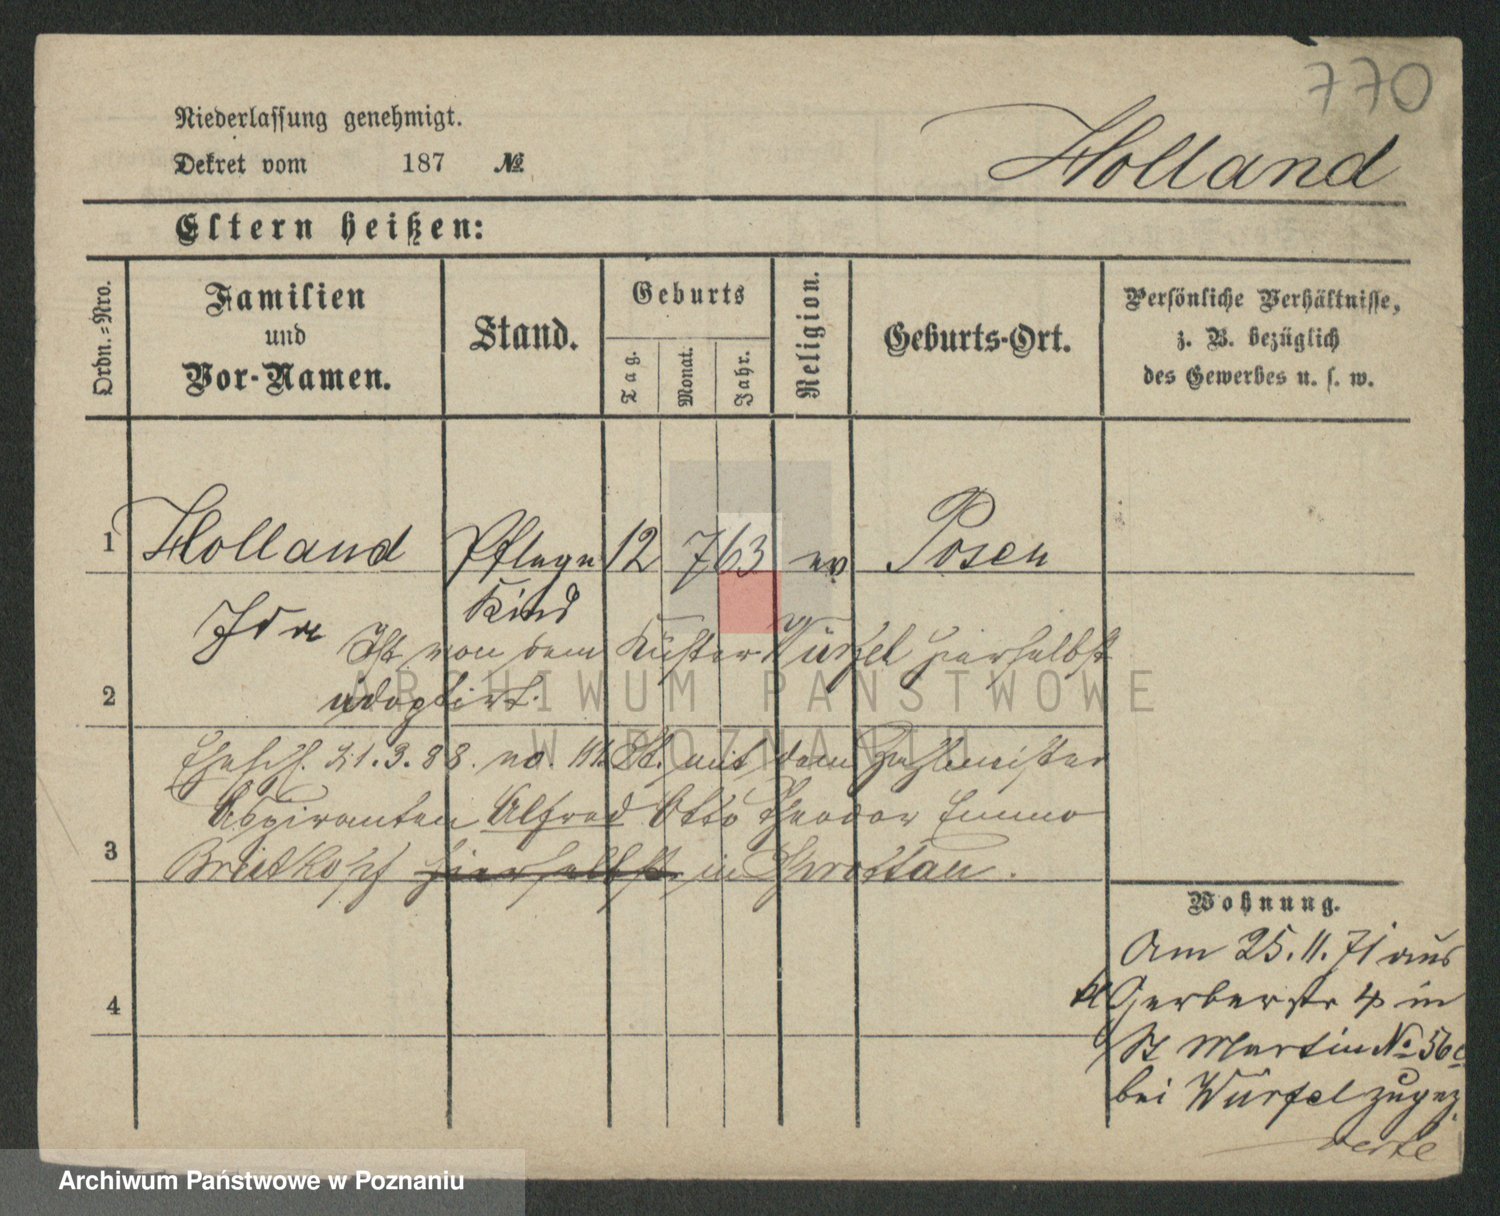 770
Niederlassung genehmigt.
Dekret vom 187 №
Holland
Eltern heißen:
Ordn.=Nro.
Familien
und
Vor-Namen.
Stand.
Geburts
Tag.
Monat.
Jahr.
Religion.
Geburts-Ort.
Persönliche Verhältnisse,
z. B. bezüglich
des Gewerbes u. s. w.
1 Holland Pflege 12 7 63 ev Posen
Ida Kind
Ist von dem Küster Würfel hierselbst
2 adoptirt.
ARCHIWUM PAŃSTWOWE
W POZNANIU
Ehesch. 31.3.88. no. mit dem Zahlmeister
Aspiranten Alfred Otto Theodor Emmo
3 Breitkopf hierselbst in Sprottau.
4
Wohnung.
Am 25.11.71 aus
kl Gerberstr 4 in
St Martin № 56c
bei Würfel zugez
Archiwum Państwowe w Poznaniu